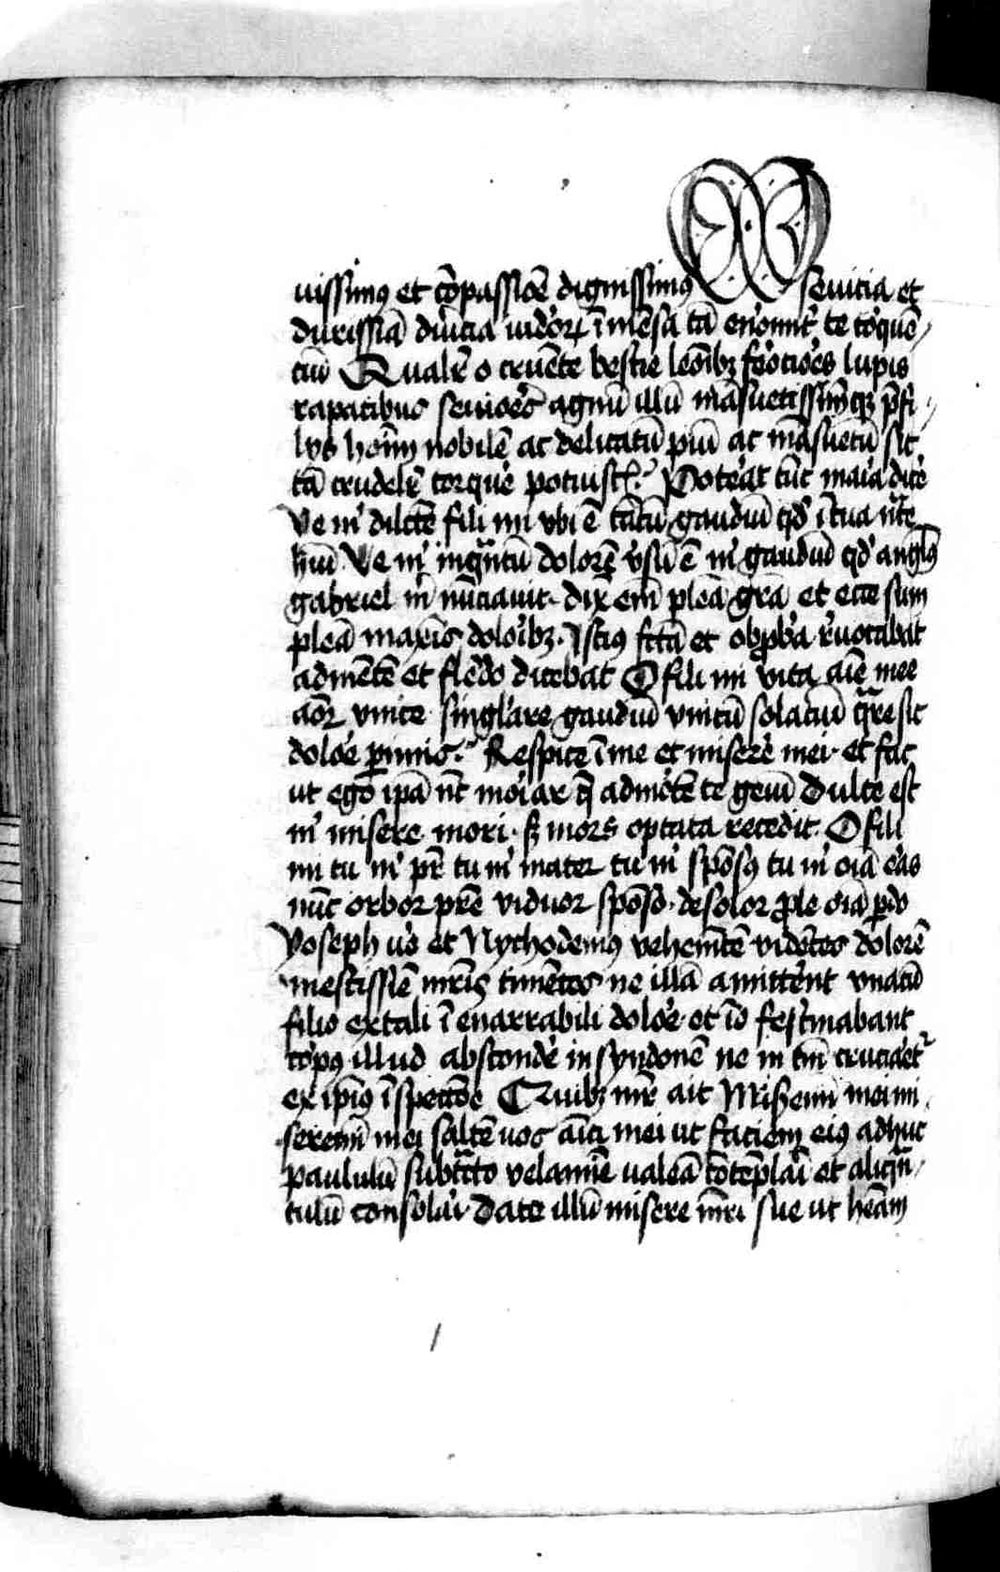 uissimꝰ et cōpassiōe dignissimꝰ O seuitia et
durissīā duricia iudeoꝝ īmēsa tā enormit' te torquē
ciū Qualr̄ o cruēte bestie leōibꝫ ferociores lupis
rapacibus seuiores agnū illū māsuetissimūqꝫ p̄ fi
lijs hoīm nobilē ac delicatū piū ac māsuetū sic
tā crudelr̄ torquere potuistꝭ? Poterat tūc maria dicere
Ve m' dilcte fili mi vbi ē tātū gaudiū qd' ī tua nr̄te
hui Ve m' inqntū dolorē ṽsū ē m' gaudiū qd' anglꝰ
gabriel m' nūciauit dix em̄ plenā grā et ecce sum
plena maxīs doloribꝫ. Istiꝰ sctā et obprobria reuocabat
ad mentē et flēdo dicebat O fili mi vita aīe mee
amor vnice singlare gaudiū vnicū solaciū qre sic
dolore ꝑimis? Respice ī me et miserere mei et fac
ut ego ipā nc moriar q̄ ad mortē te genui Dulce est
m' misere mori sꝫ mors optata recedit O fili
mi tu m' pr̄ tu m' mater tu m' spōsꝰ tu m' oīa eras
nūc orbor pr̄e viduor spōso desolor ꝓle oīa ꝑdo
Yoseph v'o et Nychodemꝰ vehemētē vidētes dolorē
mestissīe mr̄is timētes ne illā amitterent vnacū
filio ex tali īenarrabili dolore et iō festinabant
corpꝰ illud abscondere in syndonē ne in tm̄ cruciaret
ex ipiꝰ īspectōe Quibꝫ mr̄ ait Mīsemi mei mi
seremi mei saltē uos amici mei ut faciem eiꝰ adhuc
paululū subtcto velamīe ualeā cōtēplari et aliqn
tulū consolari Date illū misere mr̄i sue ut heām